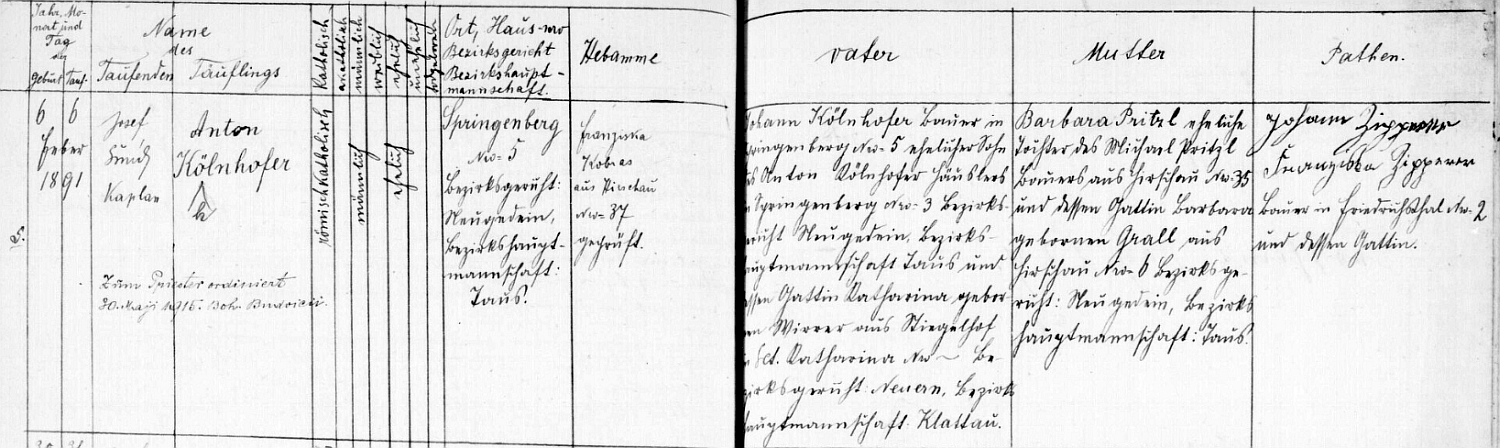 Jahr, Mo-
nat und
Tag
der
Geburt Tauf-
Name
des
Taufenden Täuflings
Katholisch
akatholisch
männlich
weiblich
ehelich
unehelich
Ort, Haus-Nro
Bezirksgericht
Bezirkshaupt-
mannschaft.
Hebamme
6 6
Feber
1891
Josef
Kaplan
Anton
Kölnhofer
h
römischkatholisch
männlich
ehelich
Springenberg
Nro- 5
Bezirksgericht:
Neugedein,
Bezirkshaupt-
mannschaft:
Taus.
Franziska
Kobras
aus
Nro- 37
geprüft.
Zum Priester ordiniert
30. 1915. Boh. Budvicii
Vater
Mutter
Pathen.
Johann Kölnhofer Bauer in
Springenberg Nro- 5 ehelicher Sohn
des Anton Kölnhofer Häuslers
in Springenberg Nro- 3 Bezirks-
gericht Neugedein, Bezirks-
hauptmannschaft Taus und
dessen Gattin Katharina gebor-
nen Wirrer aus Stiegelhof
Sct. Katharina Nro ~ Be-
zirksgericht Neuern, Bezirks
hauptmannschaft Klattau.
Barbara Pritzl eheliche
Tochter des Michael Pritzl
Bauers aus Hirschau Nro- 35
und dessen Gattin Barbara
gebornen Grall aus
Hirschau Nro- 6 Bezirksge-
richt: Neugedein, Bezirks
hauptmannschaft: Taus.
Johann Zipperer
Franziska Zipperer
Bauer in Friedrichsthal Nro- 2
und dessen Gattin.